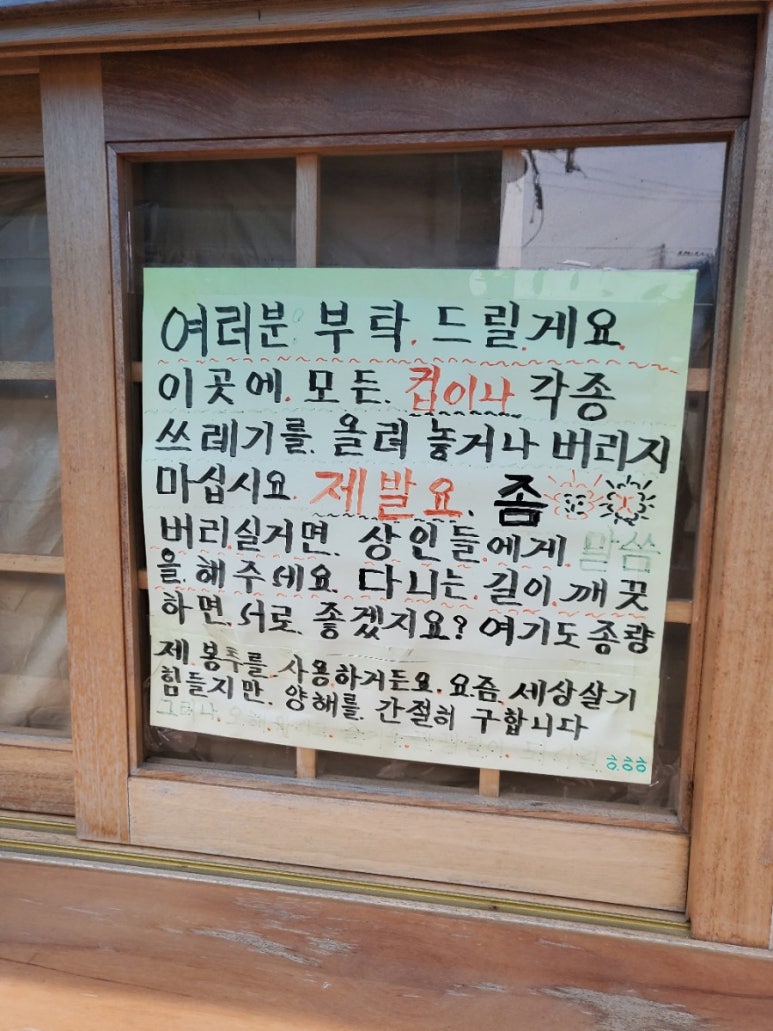 여러분 부탁. 드릴.게요.
이곳에. 모든. 컵이나 각종
쓰레기를. 올려 놓거나 버리지
마십시요. 제발요. 좀
버리.실거면. 상인들.에게. 말씀
을.해주세요. 다니는.길이.깨끗
하면.서로. 좋겠지요? 여기도 종량
제.봉투를. 사용하거든요. 요즘. 세상살기
힘들지만. 양해를. 간절히 구합니다
그러나